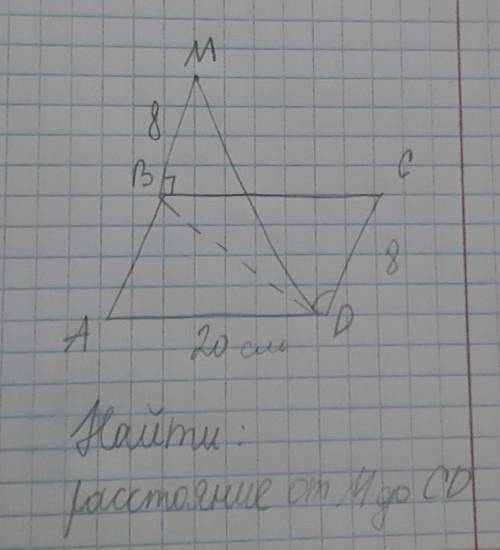 М
8
В
С
8
А
D
20 см
Найти:
расстояние от М до CD